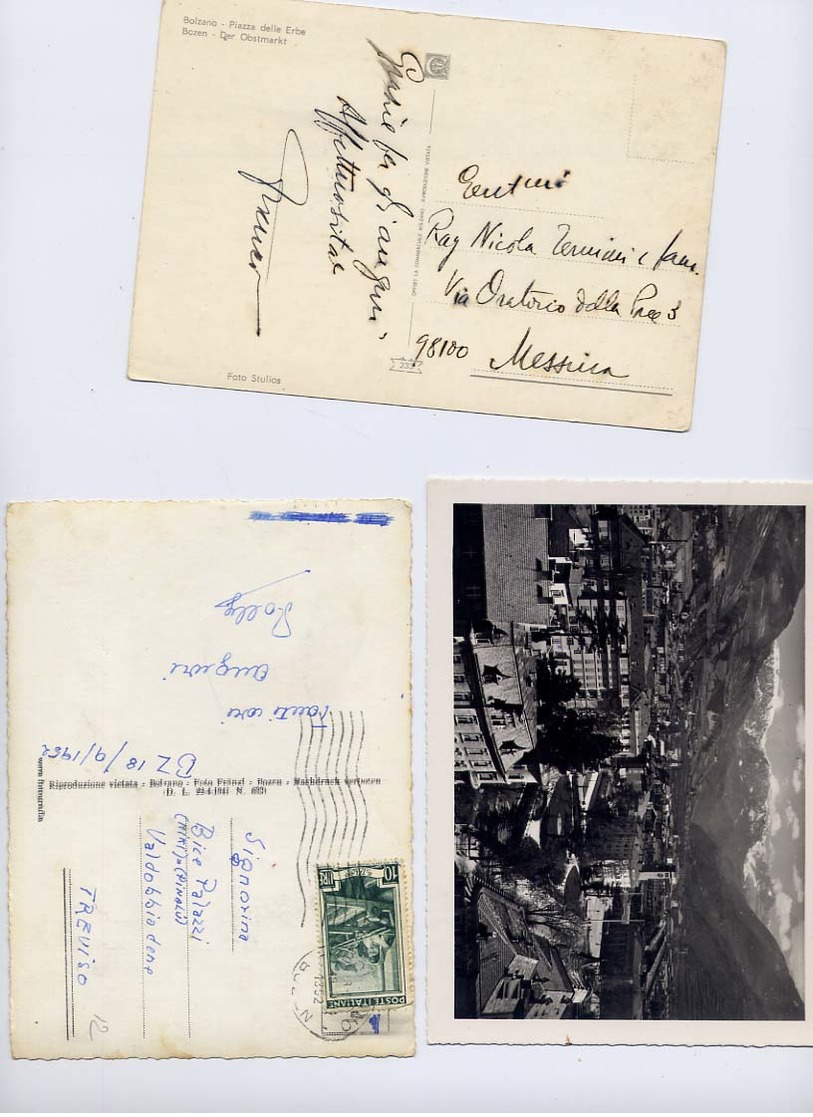 Bolzano - Piazza delle Erbe
Bozen - Der Obstmarkt
Grazie per gli auguri
Affettuosità
Franco
OFFSET LA COMMERCIALE BOLZANO - RIPRODUZIONE VIETATA
Rag Nicola Termini e fam.
Via Oratorio della Pace 3
98100 Messina
Foto Stulios
BZ 18/9/1952
Tanti cari
auguri
vera fotografia
Riproduzione vietata - Bolzano - Foto Fränzl - Bozen - Nachdruck verboten
Signorina
Bice Palazzi
Valdobbiadene
TREVISO
12
10
LIRE
POSTE ITALIANE